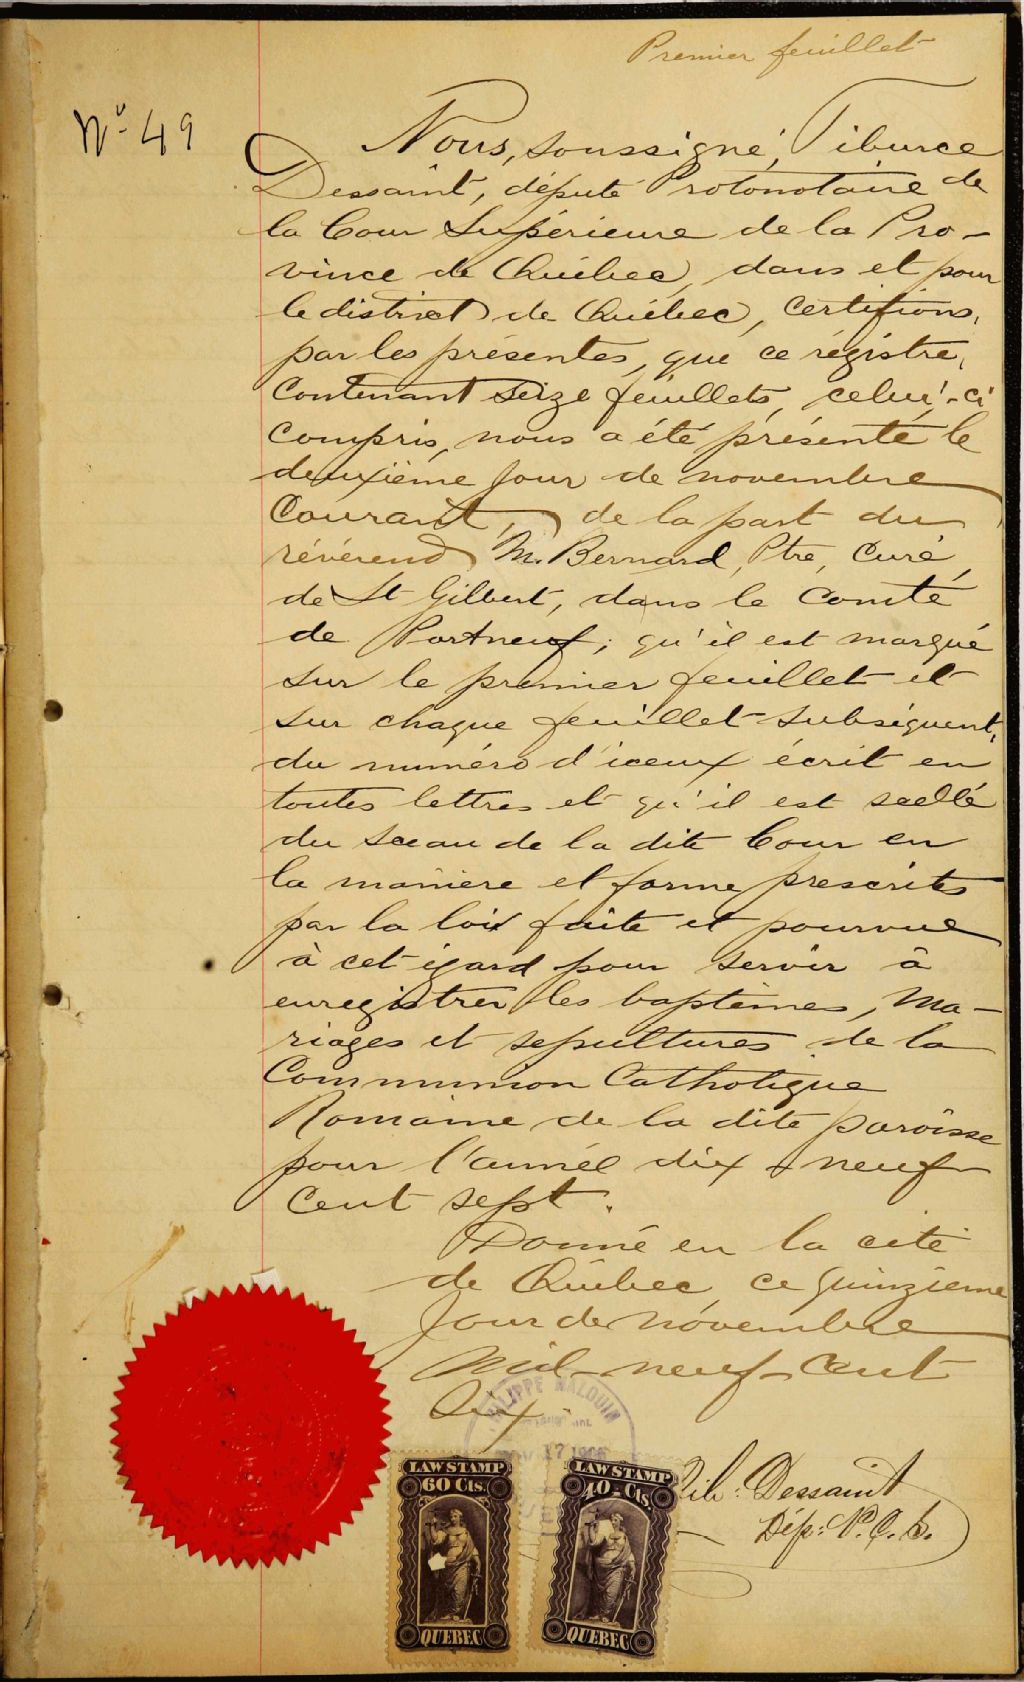 Premier feuillet
No 49
Nous, soussigné, Tiburce
Dessaint, député Protonotaire de
la Cour Supérieure de la Pro-
vince de Québec, dans et pour
le district de Québec, certifions,
par les présentes, que ce régistre,
contenant seize feuillets, celui-ci
compris, nous a été présenté le
deuxième jour de novembre
courant, de la part du
révérend M. Bernard, Ptre, Curé,
de St Gilbert, dans le Comté
de Portneuf; qu'il est marqué
sur le premier feuillet et
sur chaque feuillet subséquent,
du numéro d'iceux écrit en
toutes lettres et qu'il est scellé
du sceau de la dite Cour en
la manière et forme prescrites
par la loi faite et pourvue
à cet égard pour servir à
enregistrer les baptêmes, ma-
riages et sépultures de la
Communion Catholique
Romaine de la dite paroisse
pour l'année dix-neuf
cent sept.
Donné en la cité
de Québec, ce quinzième
jour de novembre
mil-neuf-cent
six.
PHILIPPE MALOUIN
NOV 17 1906
LAW STAMP
60 Cts.
QUEBEC
LAW STAMP
40 Cts.
QUEBEC
Tib: Dessaint
Dép: P.C.S.